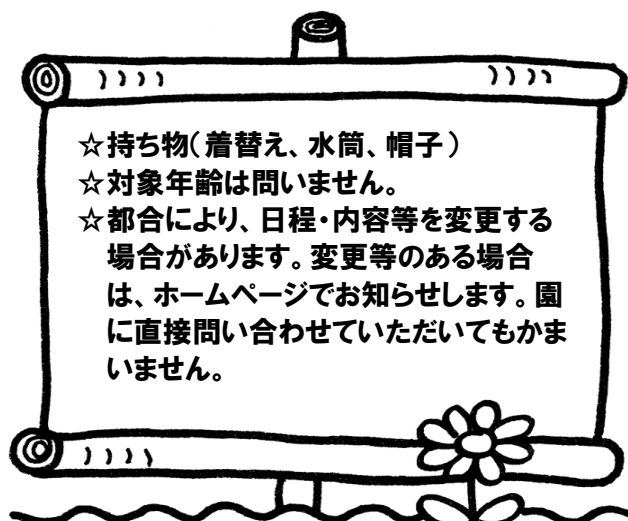 ☆持ち物(着替え、水筒、帽子)
☆対象年齢は問いません。
☆都合により、日程・内容等を変更する
場合があります。変更等のある場合
は、ホームページでお知らせします。園
に直接問い合わせていただいてもかま
いません。